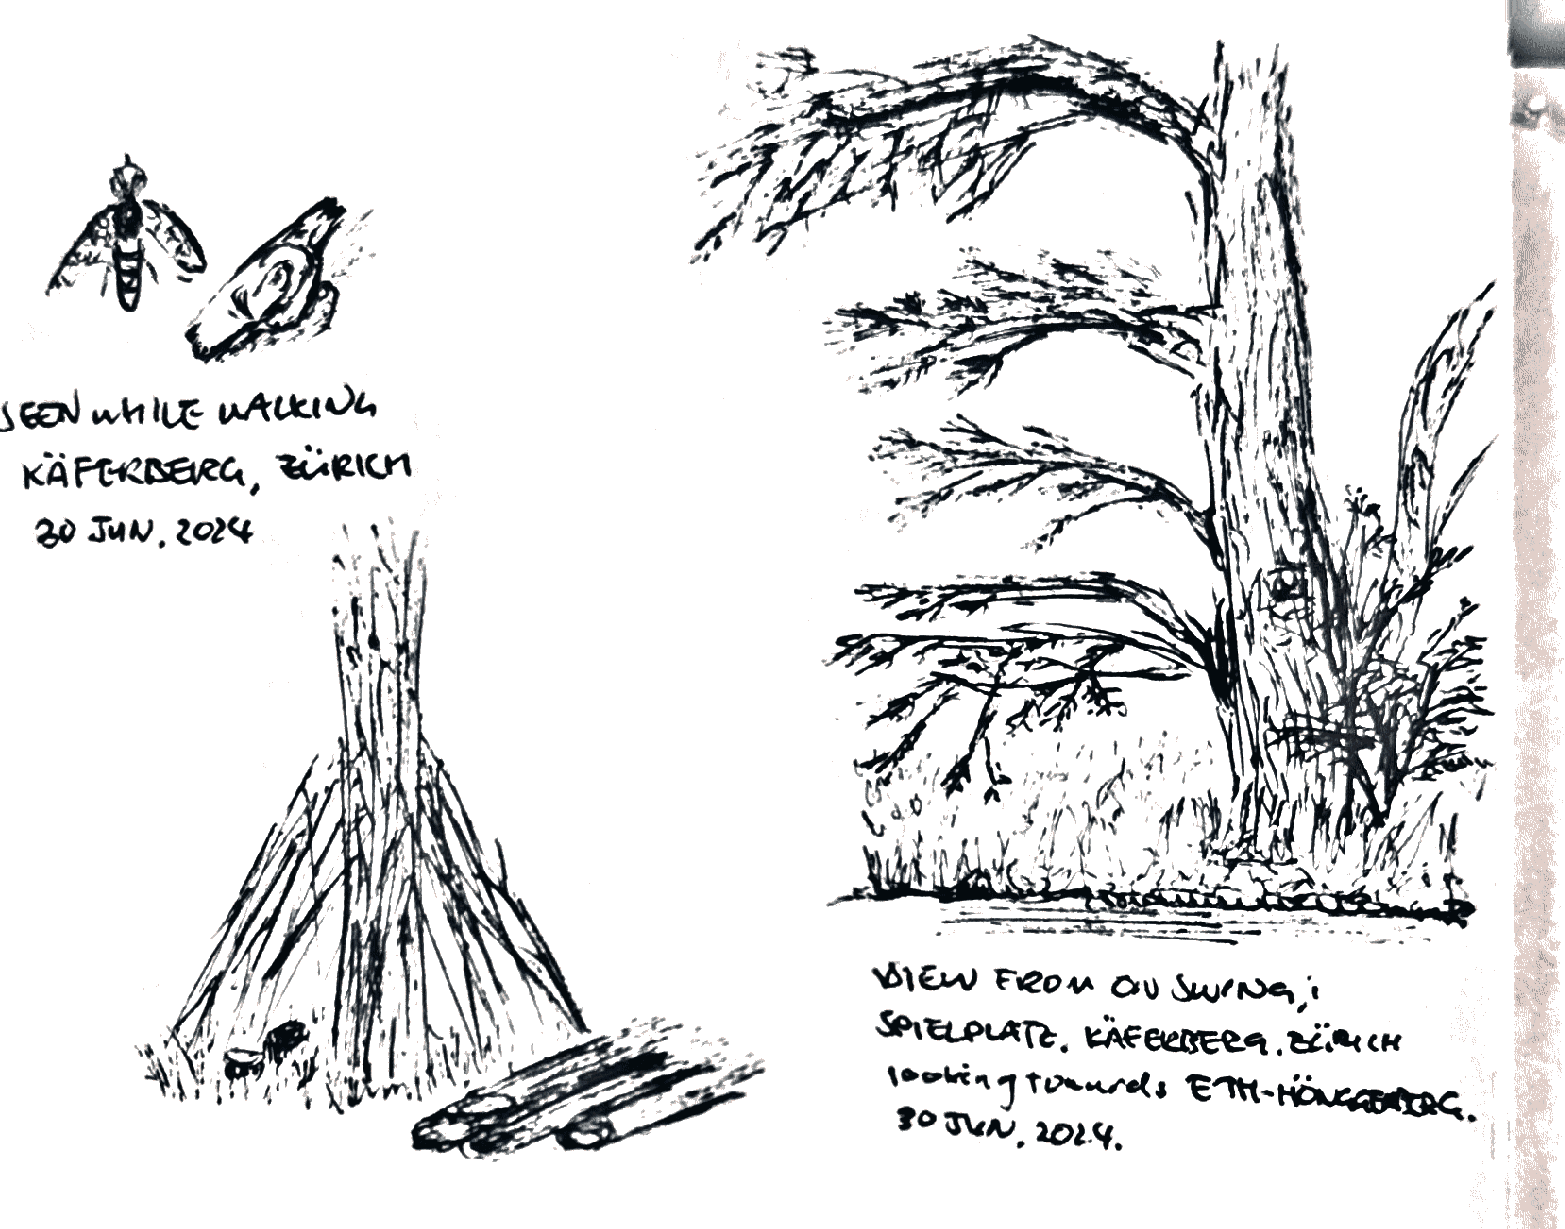 SEEN WHILE WALKING
KÄFERBERG, ZÜRICH
30 JUN, 2024
VIEW FROM ON SWING,
SPIELPLATZ, KÄFERBERG, ZÜRICH
looking towards ETH-HÖNGGERBERG.
30 JUN, 2024.